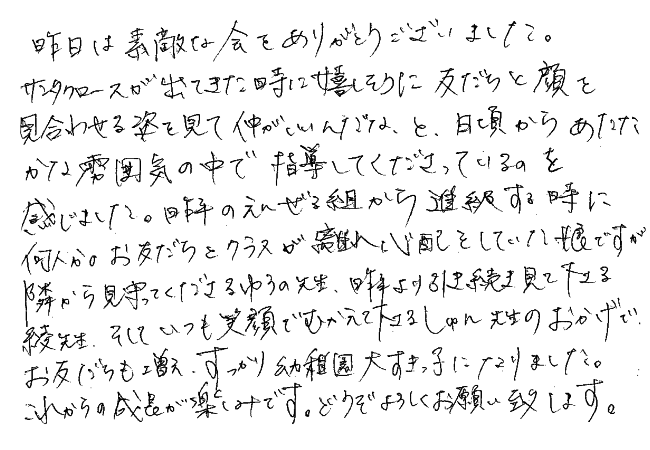 昨日は素敵な会をありがとうございました。
サンタクロースが出てきた時に嬉しそうに友だちと顔を
見合わせる姿を見て仲がいいんだな、と、日頃からあたた
かな雰囲気の中で指導してくださっているのを
感じました。昨年のえんぜる組から進級する時に
何人かのお友だちとクラスが離れ心配をしていた娘ですが
隣から見守ってくださるゆうの先生、昨年より引き続き見て下さる
綾先生、そしていつも笑顔でむかえて下さるしゅん先生のおかげで、
お友だちも増え、すっかり幼稚園大すきっ子になりました。
これからの成長が楽しみです。どうぞよろしくお願い致します。